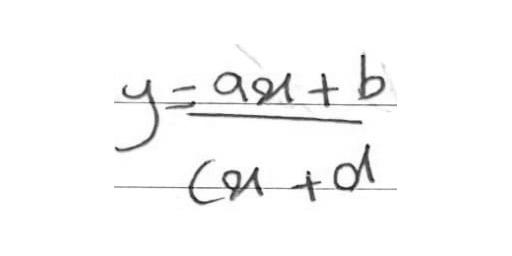 y = ax + b
cx + d